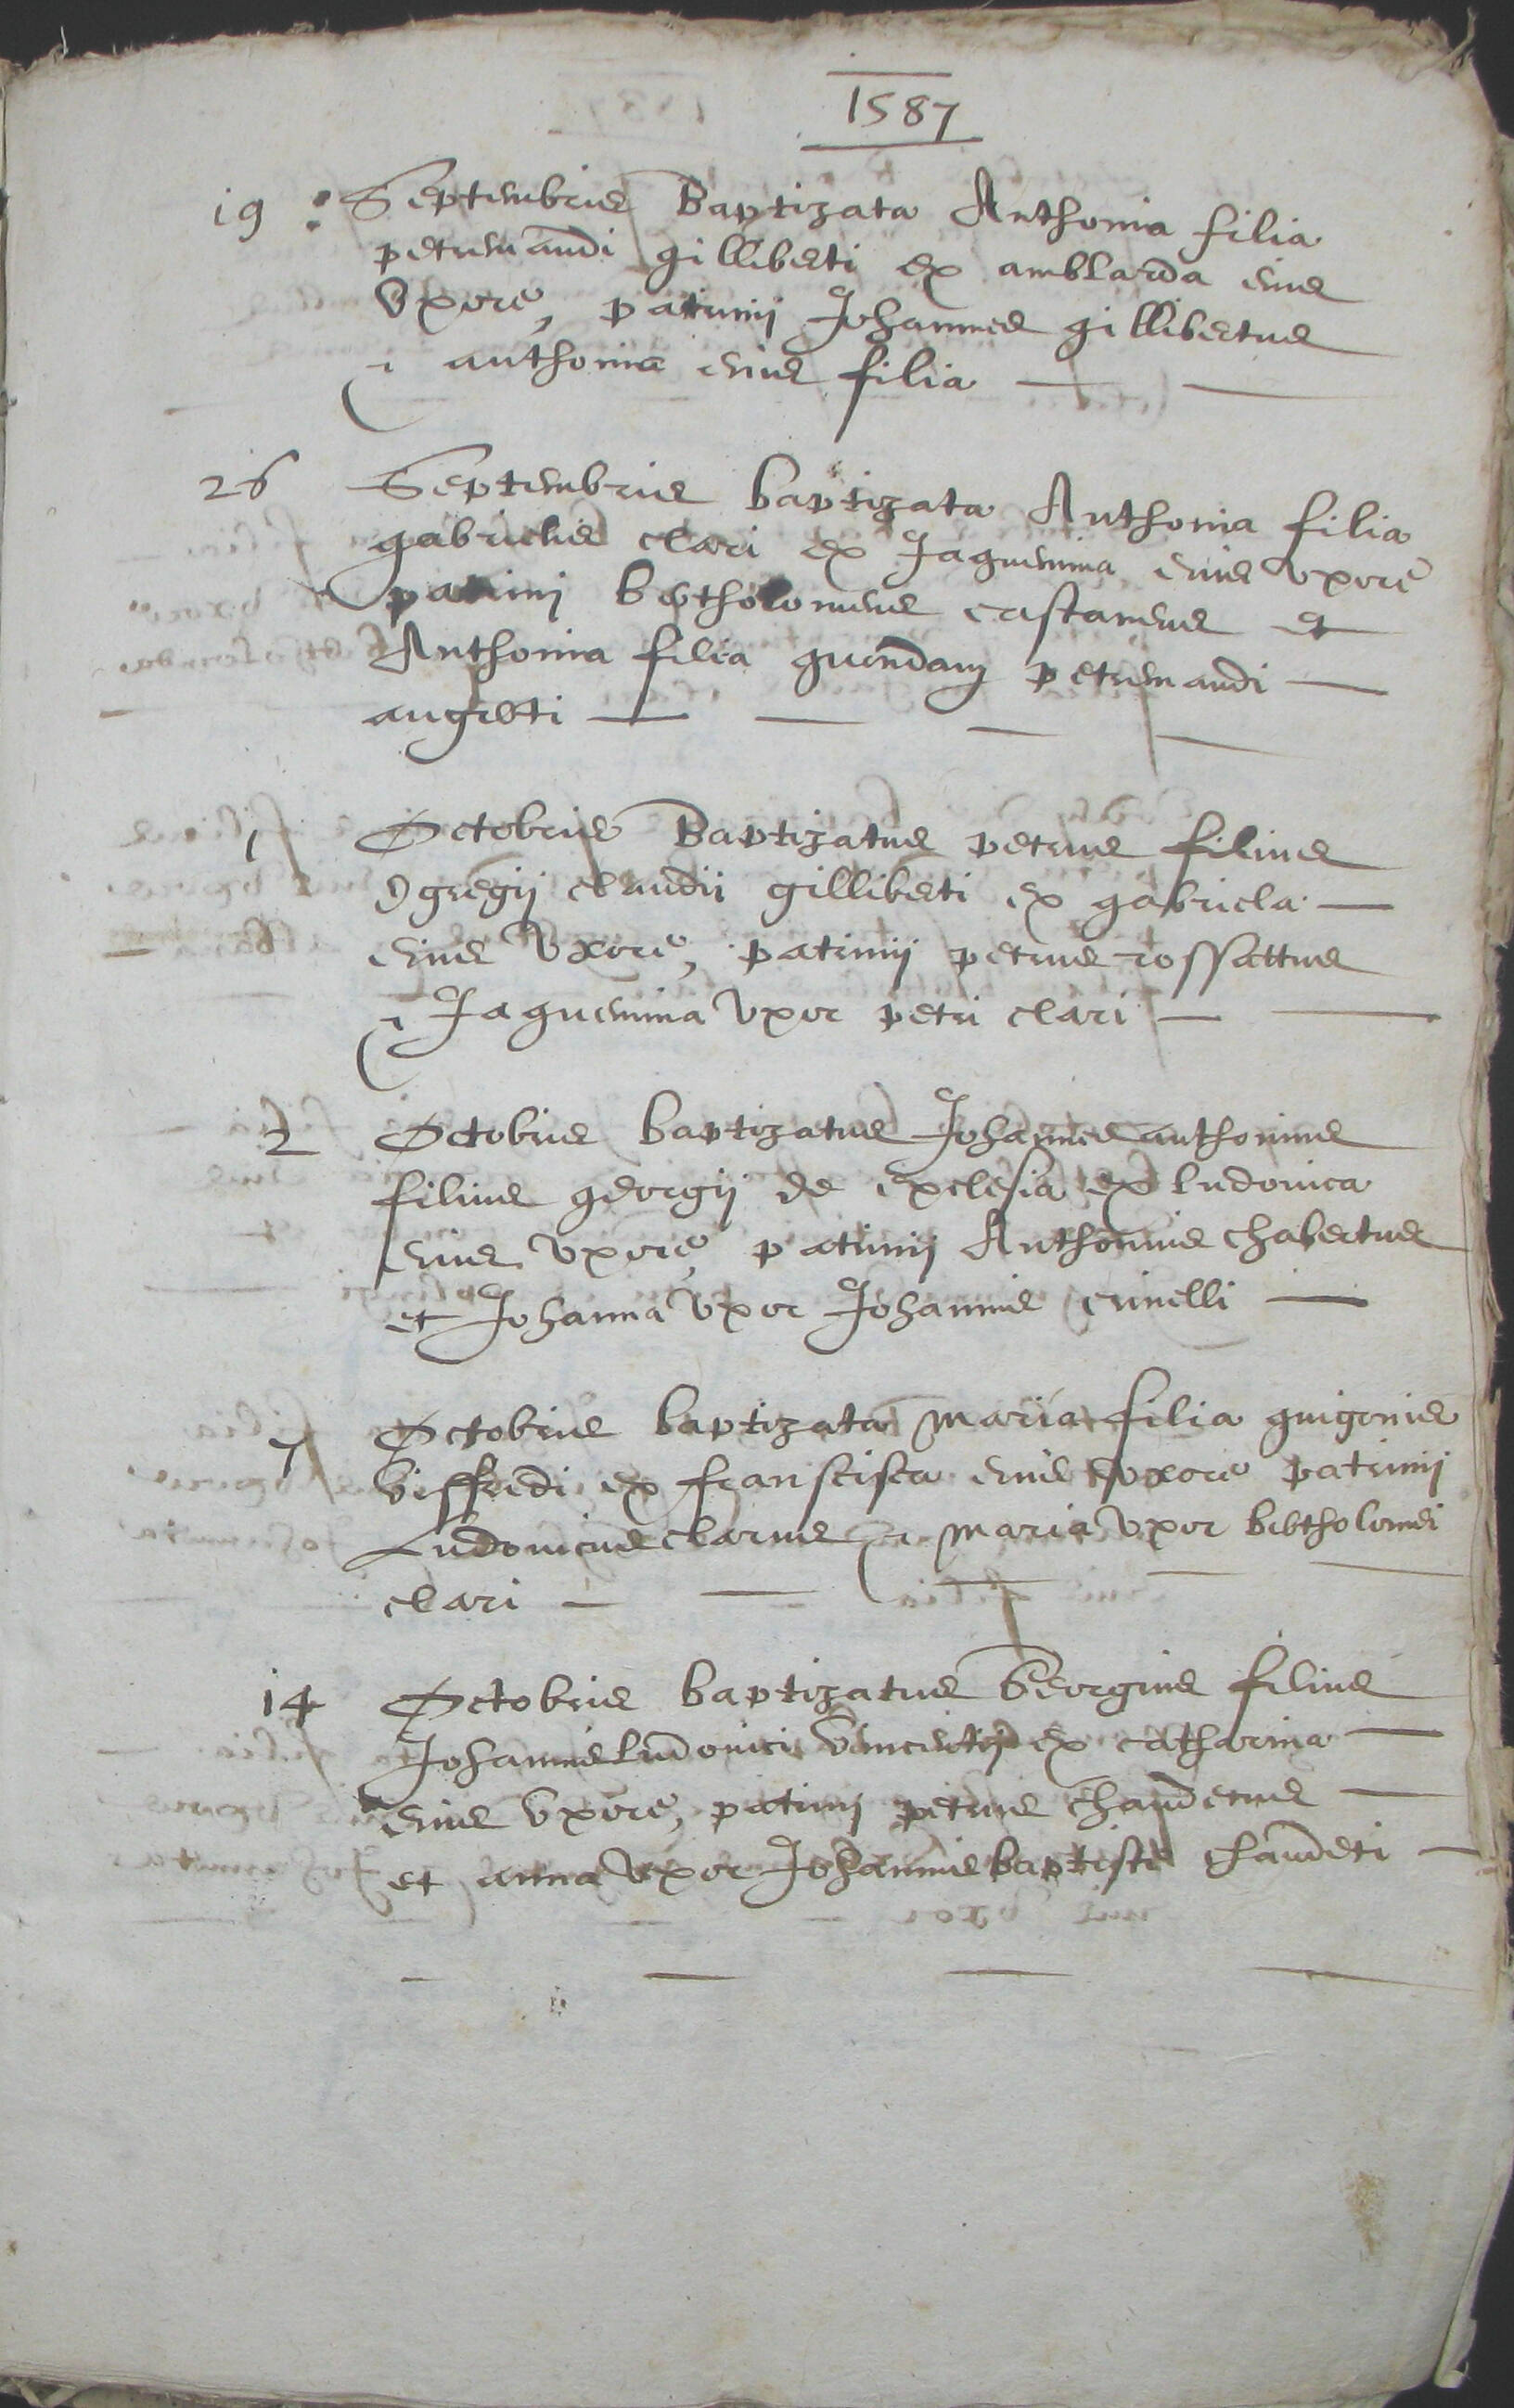 1587
19 : Septembris Baptizata Anthonia filia
petrimandi gilliberti ex amblarda eius
Uxore, patrinij Johannes gillibertus
& anthonia eius filia
26 Septembris baptizata Anthonia filia
gabrielis clari ex Jaquemina eius uxore
patrinij bertholomeus castaneus et
Anthonia filia quondam petrimandi
augerti
1 Octobris Baptizatus petrus filius
Egregij claudii gilliberti ex gabriela
eius Uxore, patrinij petrus rossattus
& Jaquemina Uxor petri clari
2 Octobris baptizatus Johannes anthonius
filius georgij de exclesia ex ludovica
eius Uxore, patrinij Anthonius chabertus
et Johanna Uxor Johannis
7 Octobris baptizata maria filia guigonis
Viffredi ex franscisca eius uxore patrinij
Ludovicus clarus & maria Uxor bertholomei
clari
14 Octobris baptizatus Georgius filius
Johannis ludovici Vincentij ex catharina
eius Uxore, patrinij petrus chaudetus
et anna Uxor Johannis baptiste chaudeti